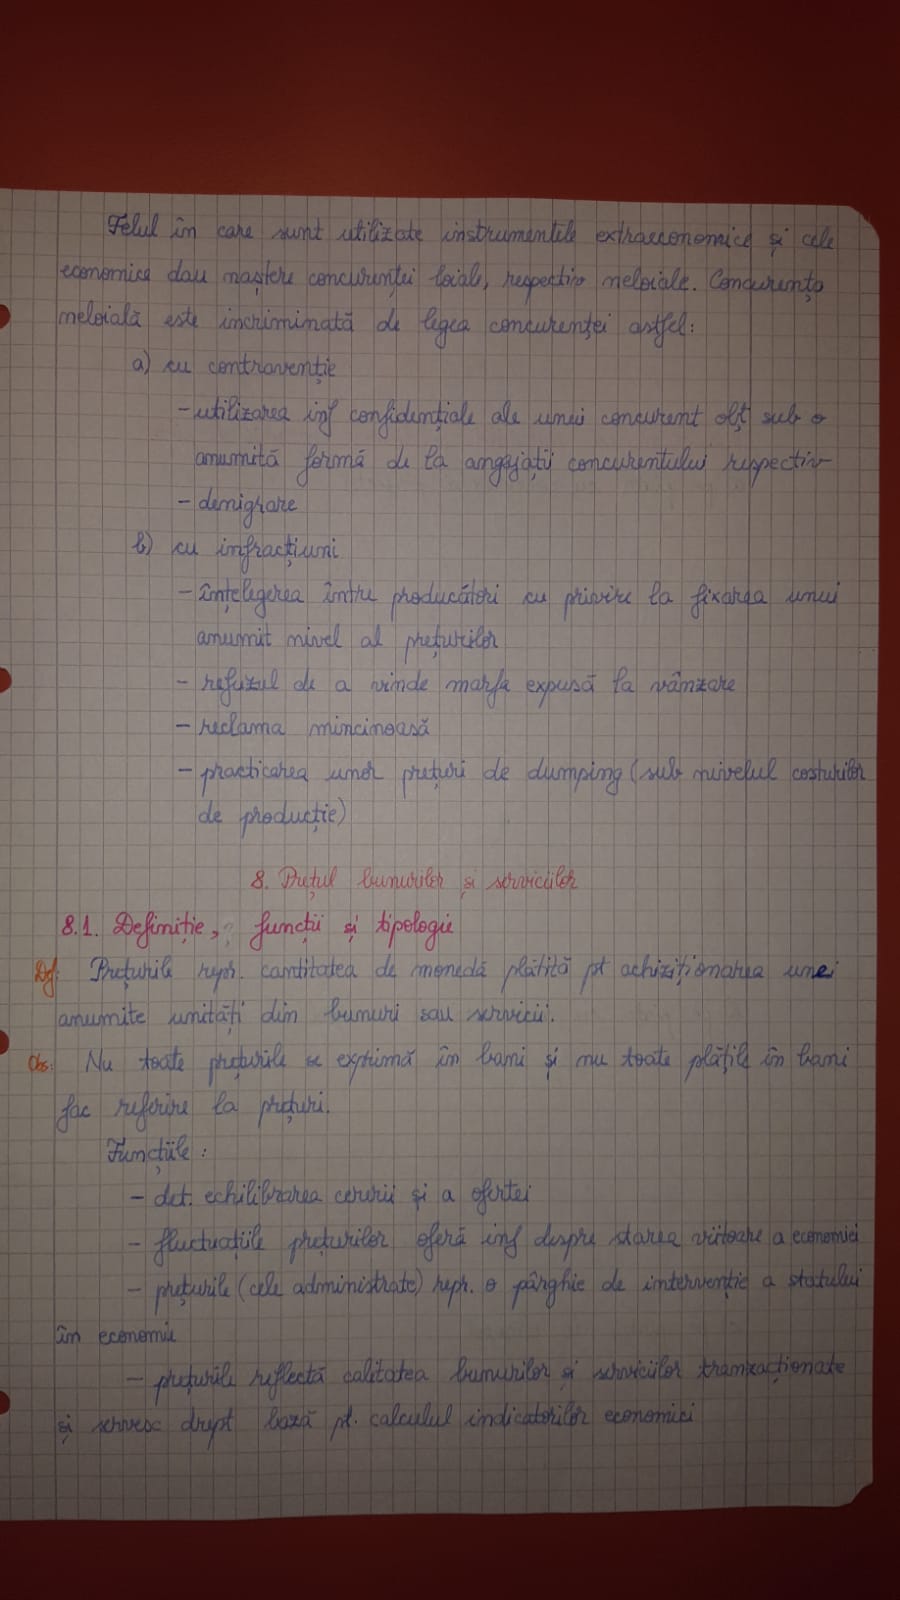 Felul în care sunt utilizate instrumentele extraeconomice și cele
economice dau naștere concurenței loiale, respectiv neloiale. Concurența
neloială este incriminată de legea concurenței astfel:
a) cu contravenție
- utilizarea inf confidențiale ale unui concurent obț sub o
anumită formă de la angajații concurentului respectiv
- denigrare
b) cu infracțiuni
- înțelegerea între producători cu privire la fixarea unui
anumit nivel al prețurilor
- refuzul de a vinde marfa expusă la vânzare
- reclama mincinoasă
- practicarea unor prețuri de dumping (sub nivelul costurilor
de producție)
8. Prețul bunurilor și serviciilor
8.1. Definiție, funcții și tipologie
Def: Prețurile repr. cantitatea de monedă plătită pt achiziționarea unei
anumite unități din bunuri sau servicii.
Obs: Nu toate prețurile se exprimă în bani și nu toate plățile în bani
fac referire la prețuri.
Funcțiile:
- det. echilibrarea cererii și a ofertei
- fluctuațiile prețurilor oferă inf despre starea viitoare a economiei
- prețurile (cele administrate) repr. o pârghie de intervenție a statului
în economie
- prețurile reflectă calitatea bunurilor și serviciilor tranzacționate
și servesc drept bază pt. calculul indicatorilor economici